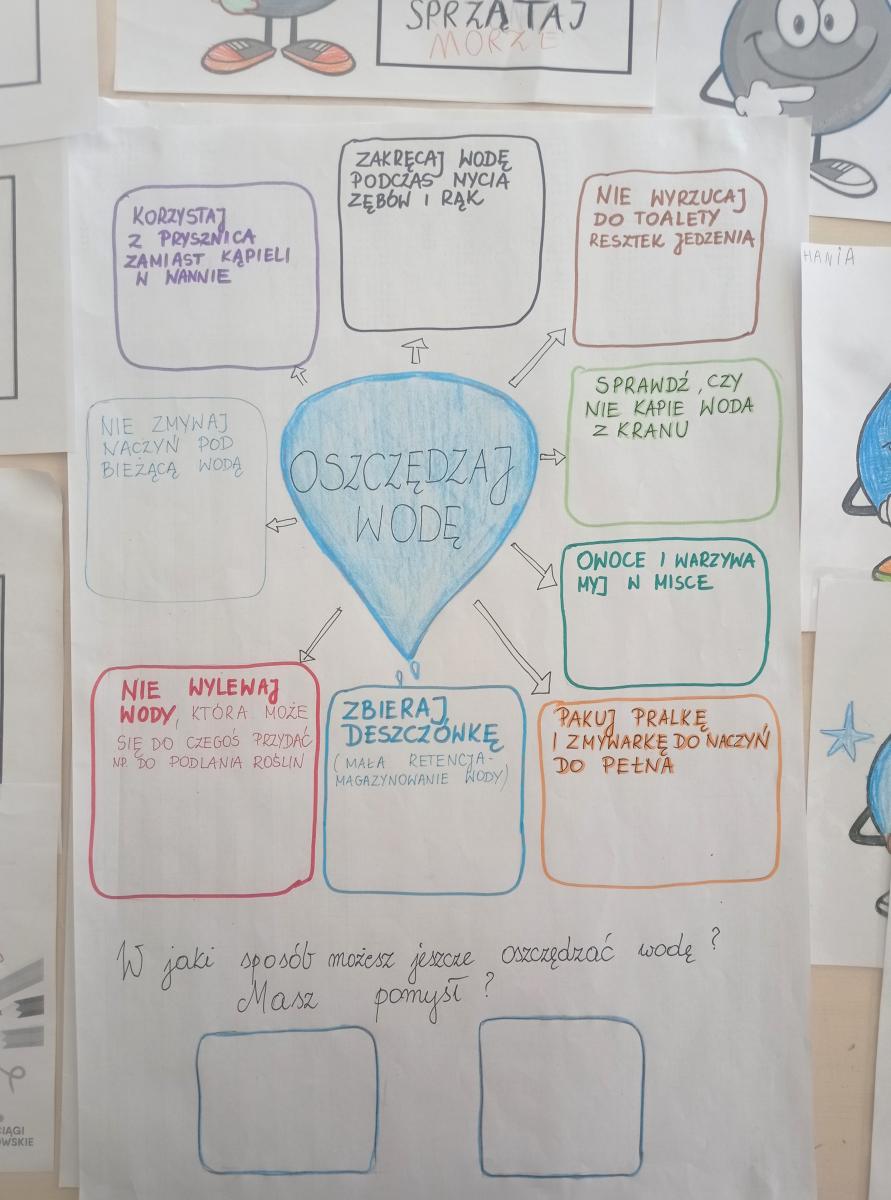 SPRZĄTAJ
MORZE
ZAKRĘCAJ WODĘ
PODCZAS MYCIA
ZĘBÓW I RĄK
KORZYSTAJ
Z PRYSZNICA
ZAMIAST KĄPIELI
W WANNIE
NIE WYRZUCAJ
DO TOALETY
RESZTEK JEDZENIA
HANIA
NIE ZMYWAJ
NACZYŃ POD
BIEŻĄCĄ WODĄ
OSZCZĘDZAJ
WODĘ
SPRAWDŹ, CZY
NIE KAPIE WODA
Z KRANU
OWOCE I WARZYWA
MYJ W MISCE
NIE WYLEWAJ
WODY, KTÓRA MOŻE
SIĘ DO CZEGOŚ PRZYDAĆ
NP. DO PODLANIA ROŚLIN
ZBIERAJ
DESZCZÓWKĘ
(MAŁA RETENCJA-
MAGAZYNOWANIE WODY)
PAKUJ PRALKĘ
I ZMYWARKĘ DO NACZYŃ
DO PEŁNA
W jaki sposób możesz jeszcze oszczędzać wodę?
Masz pomysł?